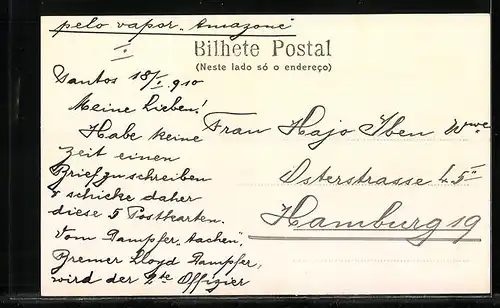 pelo vapor „Amazone“
I.
Bilhete Postal
(Neste lado só o endereço)
Santos 18/I. 910
Meine Lieben!
Habe keine
Zeit einen
Brief zu schreiben
& schicke daher
diese 5 Postkarten.
Vom Dampfer „Aachen“,
Bremer Lloyd Dampfer,
wird der 2te Offizier
Frau Hajo Iben Wwe
Osterstrasse 45 II
Hamburg 19